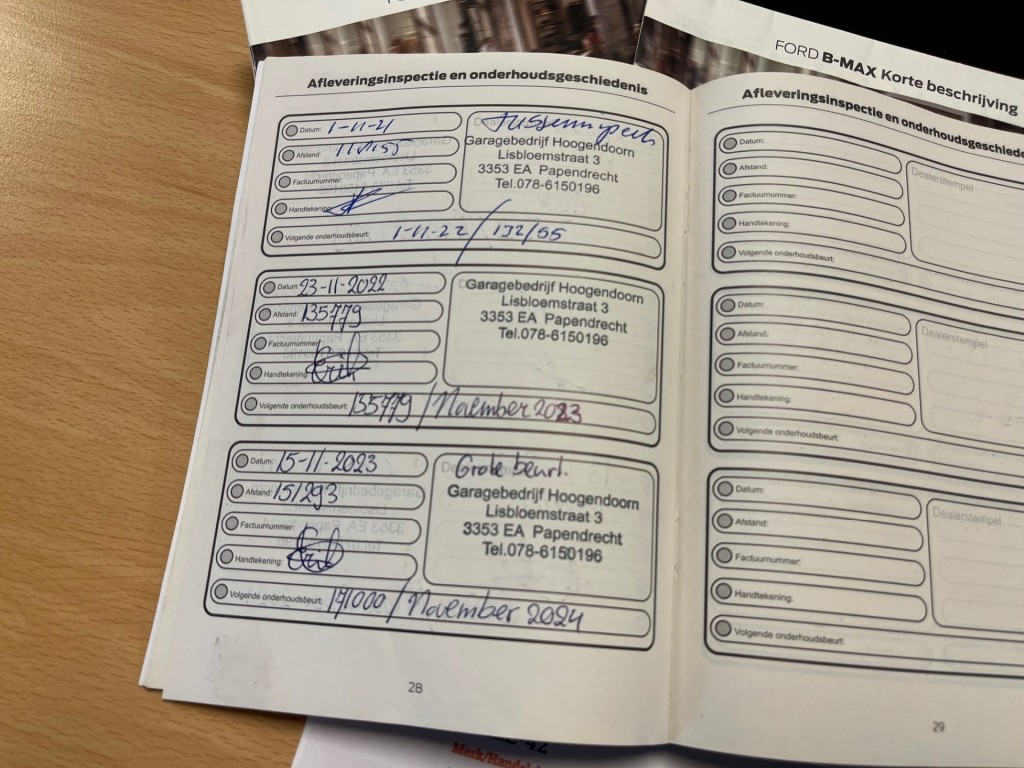 FORD B-MAX Korte beschrijving
Afleveringsinspectie en onderhoudsgeschiedenis
Datum: 1-11-21
Afstand:
Factuurnummer:
Handtekening:
Garagebedrijf Hoogendoorn
Lisbloemstraat 3
3353 EA Papendrecht
Tel.078-6150196
Volgende onderhoudsbeurt: 1-11-22 / 132/55
Datum: 23-11-2022
Afstand: 135779
Factuurnummer:
Handtekening:
Garagebedrijf Hoogendoorn
Lisbloemstraat 3
3353 EA Papendrecht
Tel.078-6150196
Volgende onderhoudsbeurt: 135779 / November 2023
Datum: 15-11-2023
Afstand: 151293
Factuurnummer:
Handtekening:
Grote beurt.
Garagebedrijf Hoogendoorn
Lisbloemstraat 3
3353 EA Papendrecht
Tel.078-6150196
Volgende onderhoudsbeurt: 171000 / November 2024
28
Afleveringsinspectie en onderhoudsgeschiede
Datum:
Afstand:
Factuurnummer:
Handtekening:
Dealerstempel
Volgende onderhoudsbeurt:
Datum:
Afstand:
Factuurnummer:
Handtekening:
Dealerstempel
Volgende onderhoudsbeurt:
Datum:
Afstand:
Factuurnummer:
Handtekening:
Dealerstempel
Volgende onderhoudsbeurt:
29